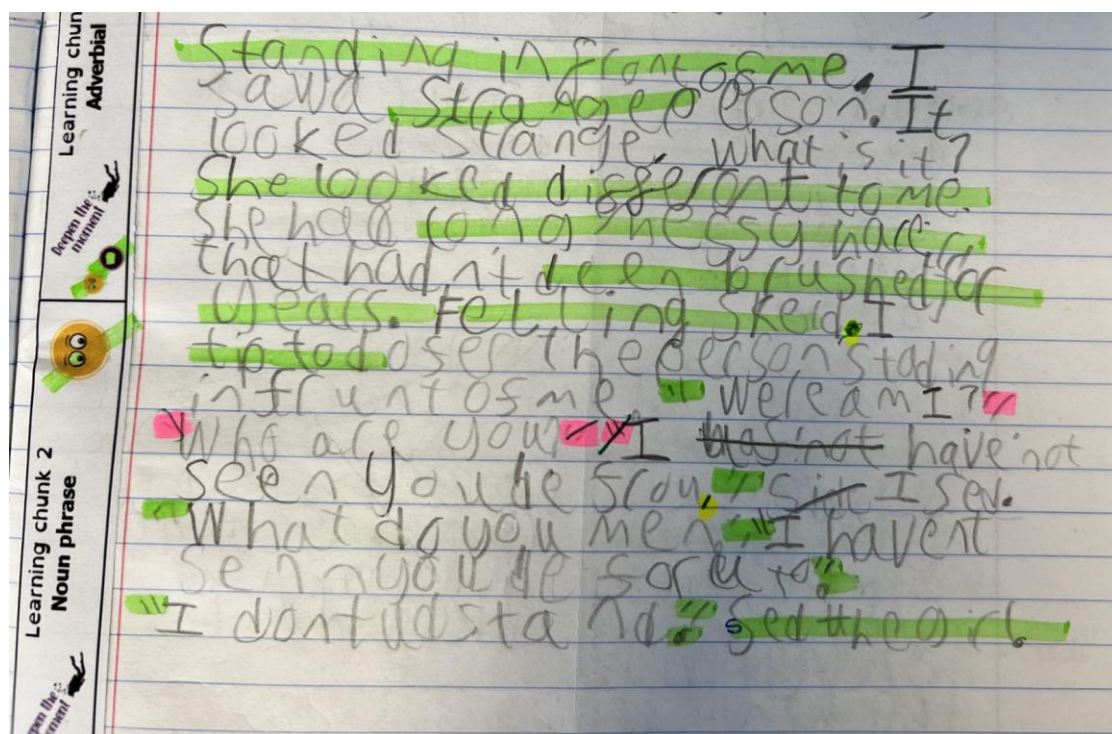 Learning chun
Adverbial
Deepen the moment
Learning chunk 2
Noun phrase
pen the
ment
Standing in front of me, I
sawa strange person. It
looked strange, what is it?
She looked different to me.
She had long messy hair,
that hadn't been brushed for
years. Felling skerd, I
tiptod oser the person stading
in frunt of me. "Were am I?"
"Who are you" "I was not have not
seen you be frou" sin I sed.
"What do you men" "I havent
senn you be fore to"
"I dont udstand." Sed the girl.